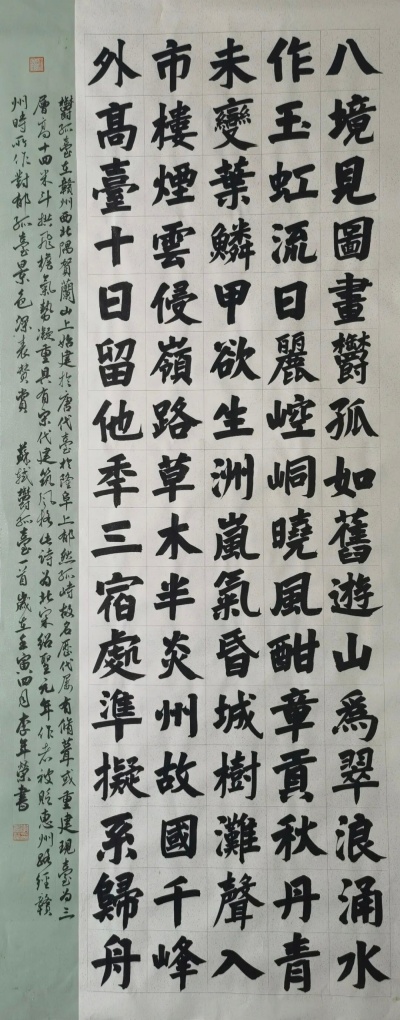 八境見圖畫鬱孤如舊遊山爲翠浪涌水
作玉虹流日麗崆峒曉風酣章貢秋丹青
未變葉鱗甲欲生洲嵐氣昏城樹灘聲入
市樓煙雲侵嶺路草木半炎州故國千峰
外髙臺十日留他秊三宿處準擬系歸舟
鬱孤臺在贛州西北隅賀蘭山上始建於唐代臺於隆阜上郁然孤峙故名歷代屢有脩葺或重建現臺為三
層高十四米斗拱飛檐氣勢凝重具有宋代建筑風格此詩為北宋紹聖元年作者被貶惠州路經贛
州時所作對郁孤臺景色深表贊賞 蘇軾鬱孤臺一首歲在壬寅四月李年榮書